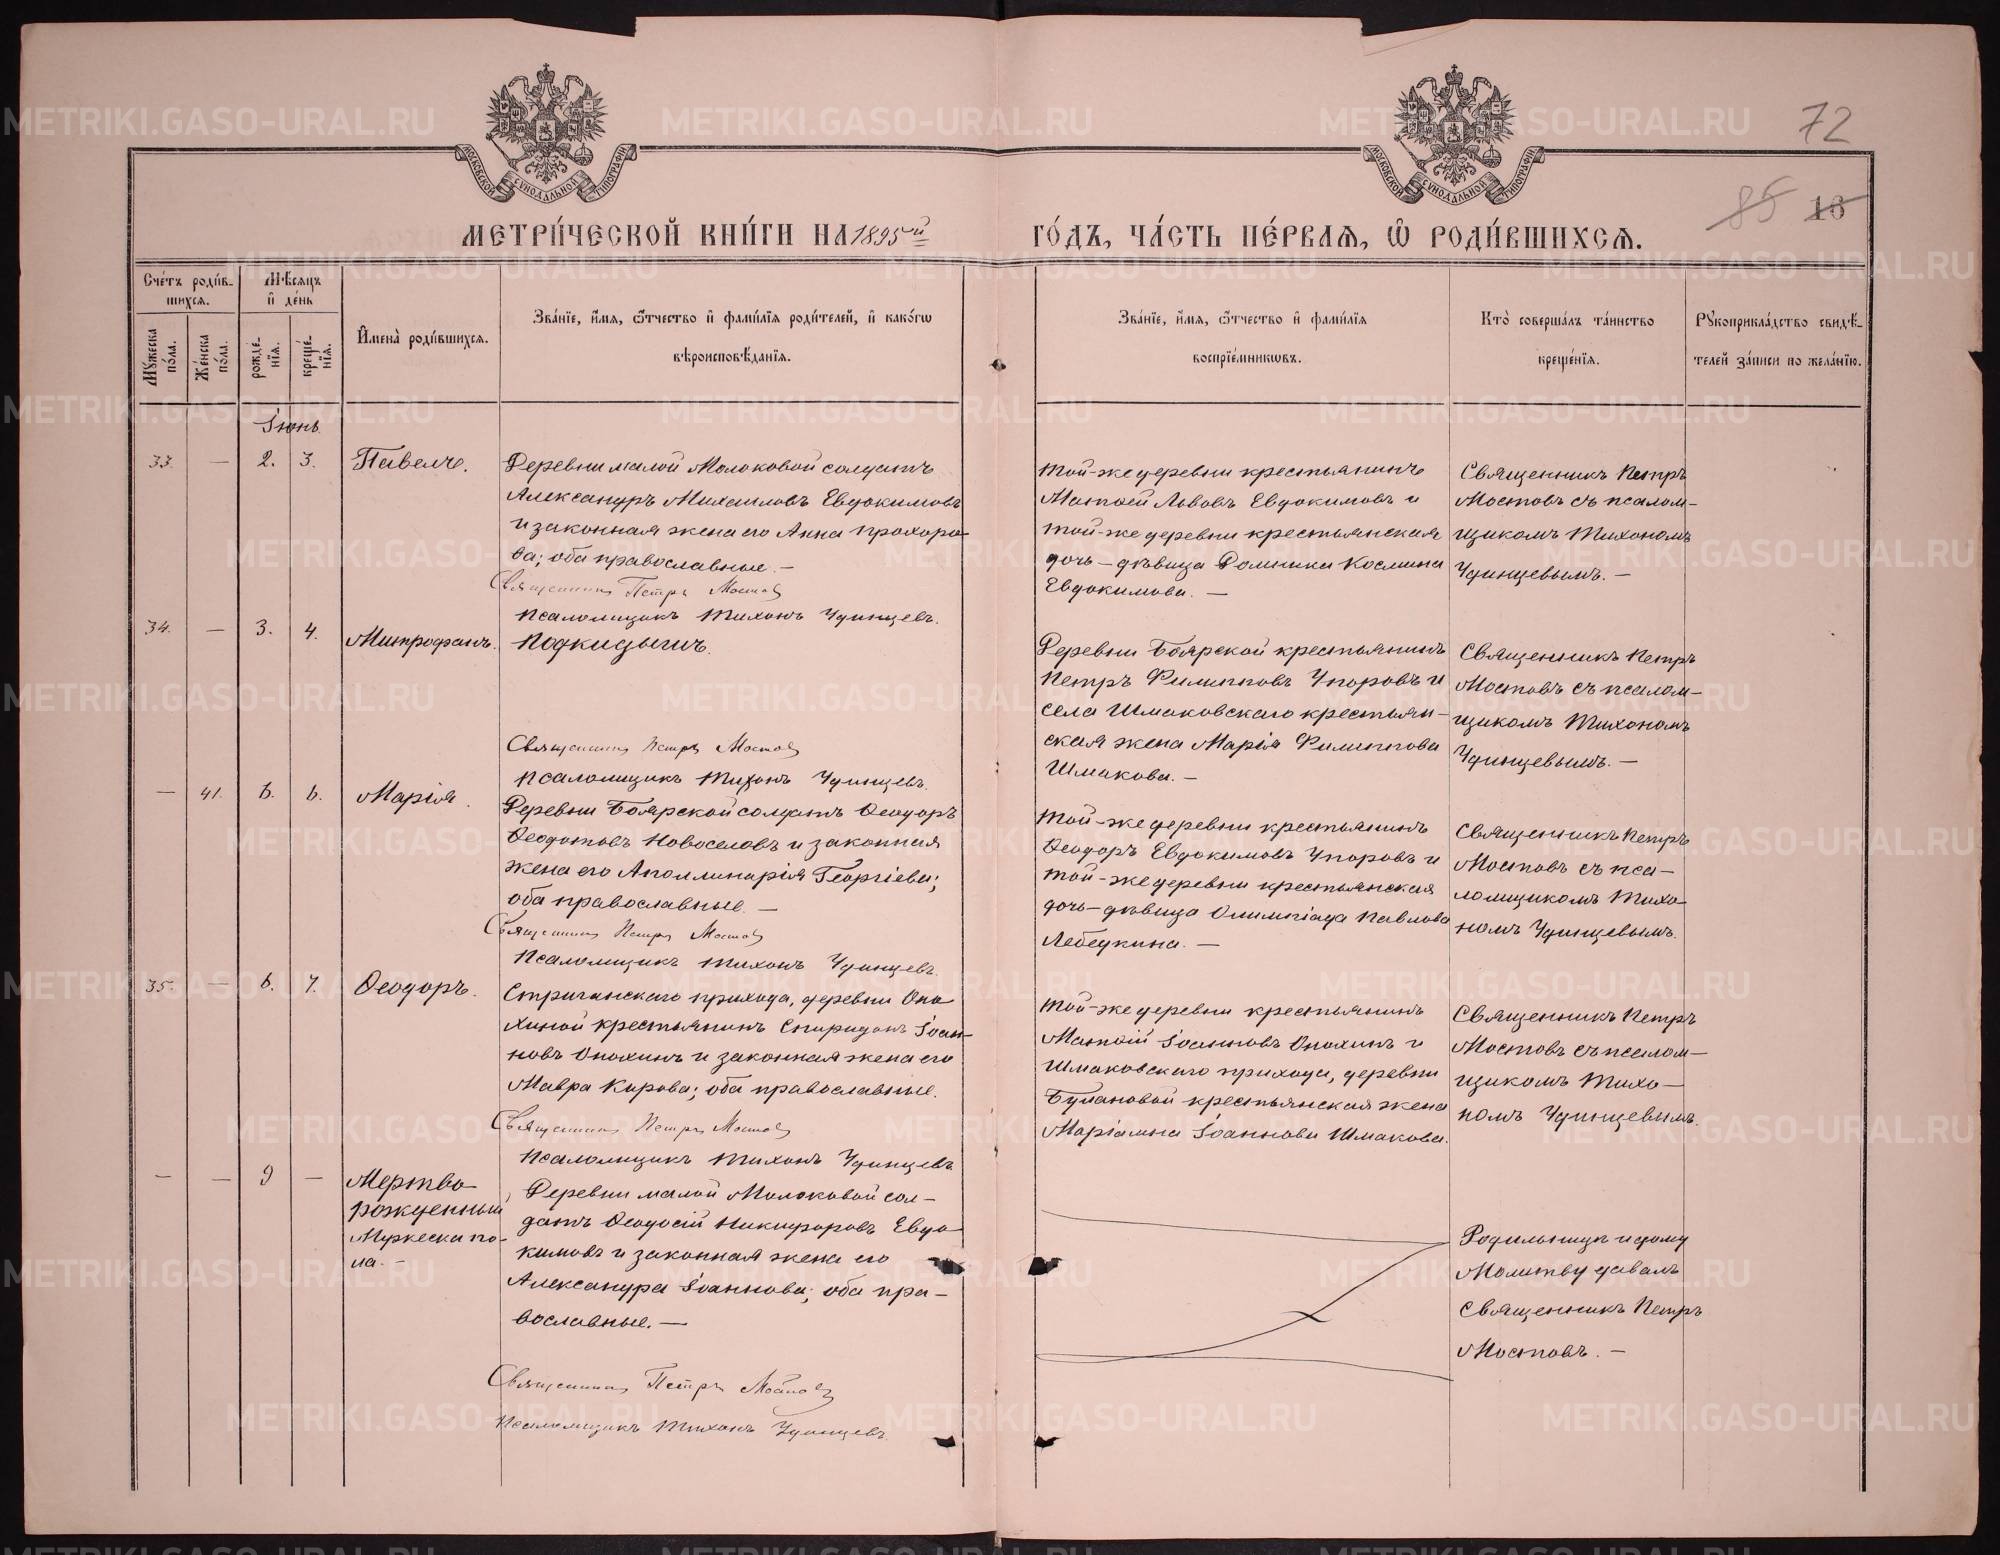 72
85 16
МОСКОВСКОЙ СѴНОДАЛЬНОЙ ТИПОГРАФІИ
МОСКОВСКОЙ СѴНОДАЛЬНОЙ ТИПОГРАФІИ
МЕТРИ́ЧЕСКОЙ КНИ́ГИ НА 1895й
ГО́ДЪ, ЧА́СТЬ ПЕ́РВАЯ, Ѡ РОДИ́ВШИХСЯ.
Сче́тъ роди́в-
шихся.
Мѣсяцъ
и҆ де́нь
Мꙋ́жеска по́ла.
Же́нска по́ла.
рожде́-
нїя.
креще́-
нїя.
И҆мена̀ роди́вшихся.
Зва́нїе, и҆́мя, ѻ҆́тчество и҆ фами́лїя роди́телей, и҆ како́гѡ
вѣроисповѣ́данїя.
Зва́нїе, и҆́мя, ѻ҆́тчество и҆ фами́лїя
воспрїе́мникѡвъ.
Кто̀ соверша́лъ та́инство
креще́нїя.
Рꙋкоприкла́дство свидѣ́-
телей за́писи по жела́нїю.
Іюнь.
33. — 2. 3. Павелъ.
Деревни малой Молоковой солдатъ
Александръ Михаиловъ Евдокимовъ
и законная жена его Анна Прохоро-
ва; оба православные. —
Священникъ Петръ Мостов
Псаломщикъ Тихонъ Удинцевъ.
Той-же деревни крестьянинъ
Матѳей Львовъ Евдокимовъ и
той-же деревни крестьянская
дочь – дѣвица Домника Космина
Евдокимова. —
Священникъ Петръ
Мостовъ съ псалом-
щикомъ Тихономъ
Удинцевымъ. —
34. — 3. 4. Митрофанъ.
Подкидышъ.
Священникъ Петръ Мостов
Псаломщикъ Тихонъ Удинцевъ.
Деревни Боярской крестьянинъ
Петръ Филипповъ Упоровъ и
села Шмаковскаго крестьян-
ская жена Марія Филиппова
Шмакова. —
Священникъ Петръ
Мостовъ съ псалом-
щикомъ Тихономъ
Удинцевымъ. —
— 41. 6. 6. Марія.
Деревни Боярской солдатъ Ѳеодоръ
Ѳеодотовъ Новоселовъ и законная
жена его Аполлинарія Георгіева;
оба православные. —
Священникъ Петръ Мостов
Псаломщикъ Тихонъ Удинцевъ.
Той-же деревни крестьянинъ
Ѳеодоръ Евдокимовъ Упоровъ и
той-же деревни крестьянская
дочь – дѣвица Олимпіада Павлова
Лебедкина. —
Священникъ Петръ
Мостовъ съ пса-
ломщикомъ Тихо-
номъ Удинцевымъ.
35. — 6. 7. Ѳеодоръ.
Стриганскаго прихода, деревни Опо-
хиной крестьянинъ Спиридонъ Іоан-
новъ Опохинъ и законная жена его
Мавра Кирова; оба православные.
Священникъ Петръ Мостов
Псаломщикъ Тихонъ Удинцевъ
Той-же деревни крестьянинъ
Матѳій Іоанновъ Опохинъ и
Шмаковскаго прихода, деревни
Булановой крестьянская жена
Маріамна Іоаннова Шмакова.
Священникъ Петръ
Мостовъ съ псалом-
щикомъ Тихо-
номъ Удинцевымъ.
— — 9 — Мертво-
рожденный
Мужеска по-
ла. —
Деревни малой Молоковой сол-
датъ Ѳеодосій Никифоровъ Евдо-
кимовъ и законная жена его
Александра Іоаннова; оба пра-
вославные. —
Священникъ Петръ Мостов
Псаломщикъ Тихонъ Удинцевъ.
Родильницѣ и дому
Молитву давалъ
Священникъ Петръ
Мостовъ. —
METRIKI.GASO-URAL.RU